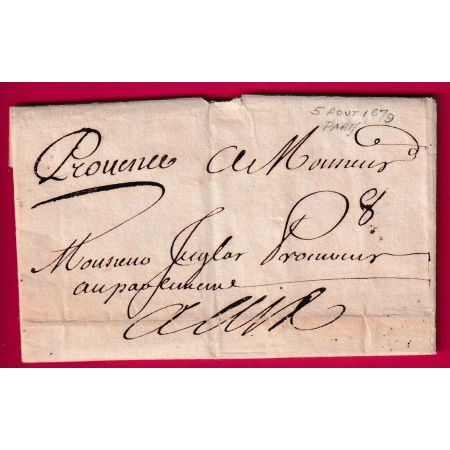 5 AOUT 1679
PARIS
Prouence A Monsieur
8
Monsieur Juglar Procureur
au parlement
A Aix